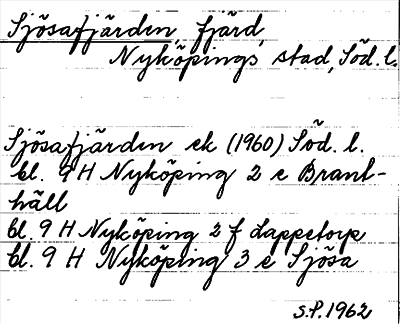 Sjösafjärden, fjärd,
Nyköpings stad, Söd. l.
Sjösafjärden ek (1960) Söd. l.
bl. 9 H Nyköping 2 e Brant-
häll
bl. 9 H Nyköping 2 f Lappetorp
bl. 9 H Nyköping 3 e Sjösa
S.P. 1962